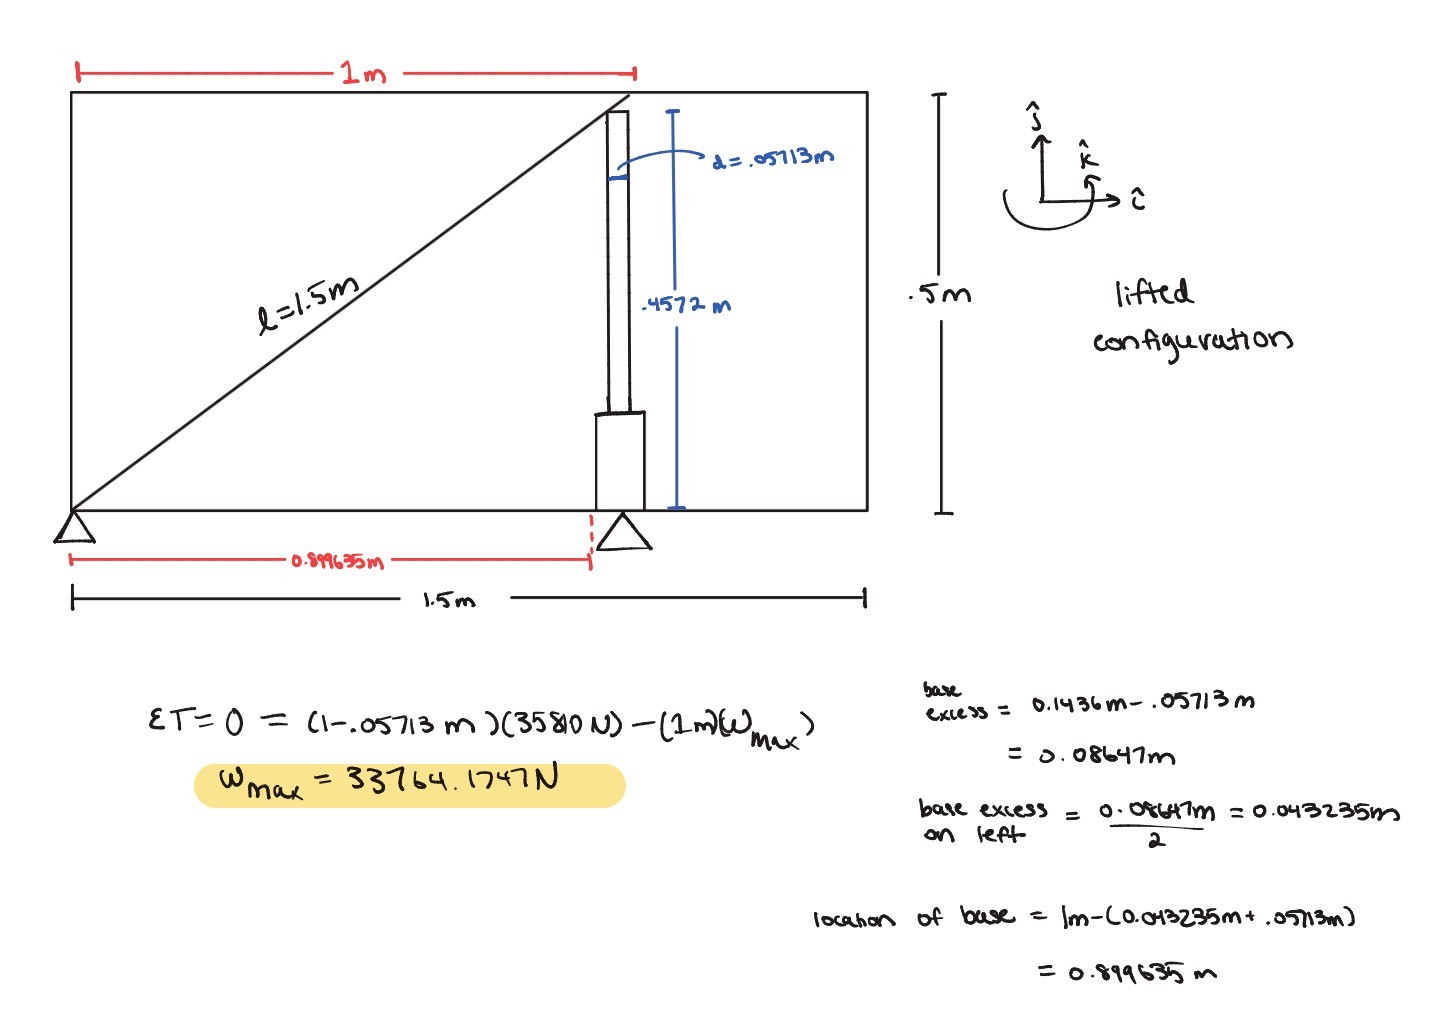 1m
d=.05713m
ĵ
k̂
î
l=1.5m
.4572 m
.5m
lifted
configuration
0.899635m
1.5m
ΣT=0 = (1-.05713 m)(35810 N) - (1m)(ω max)
ω max = 33764.1747N
base
excess = 0.1436m - .05713m
= 0.08647m
base excess = 0.08647m = 0.043235m
on left 2
location of base = 1m-(0.043235m + .05713m)
= 0.899635 m